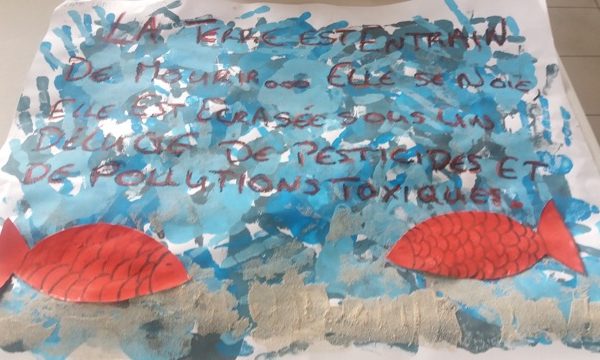 LA TERRE EST ENTRAIN
DE MOURIR... ELLE SE NOIE
ELLE EST ECRASÉE SOUS UN
DÉLUGE DE PESTICIDES ET
DE POLLUTIONS TOXIQUES.